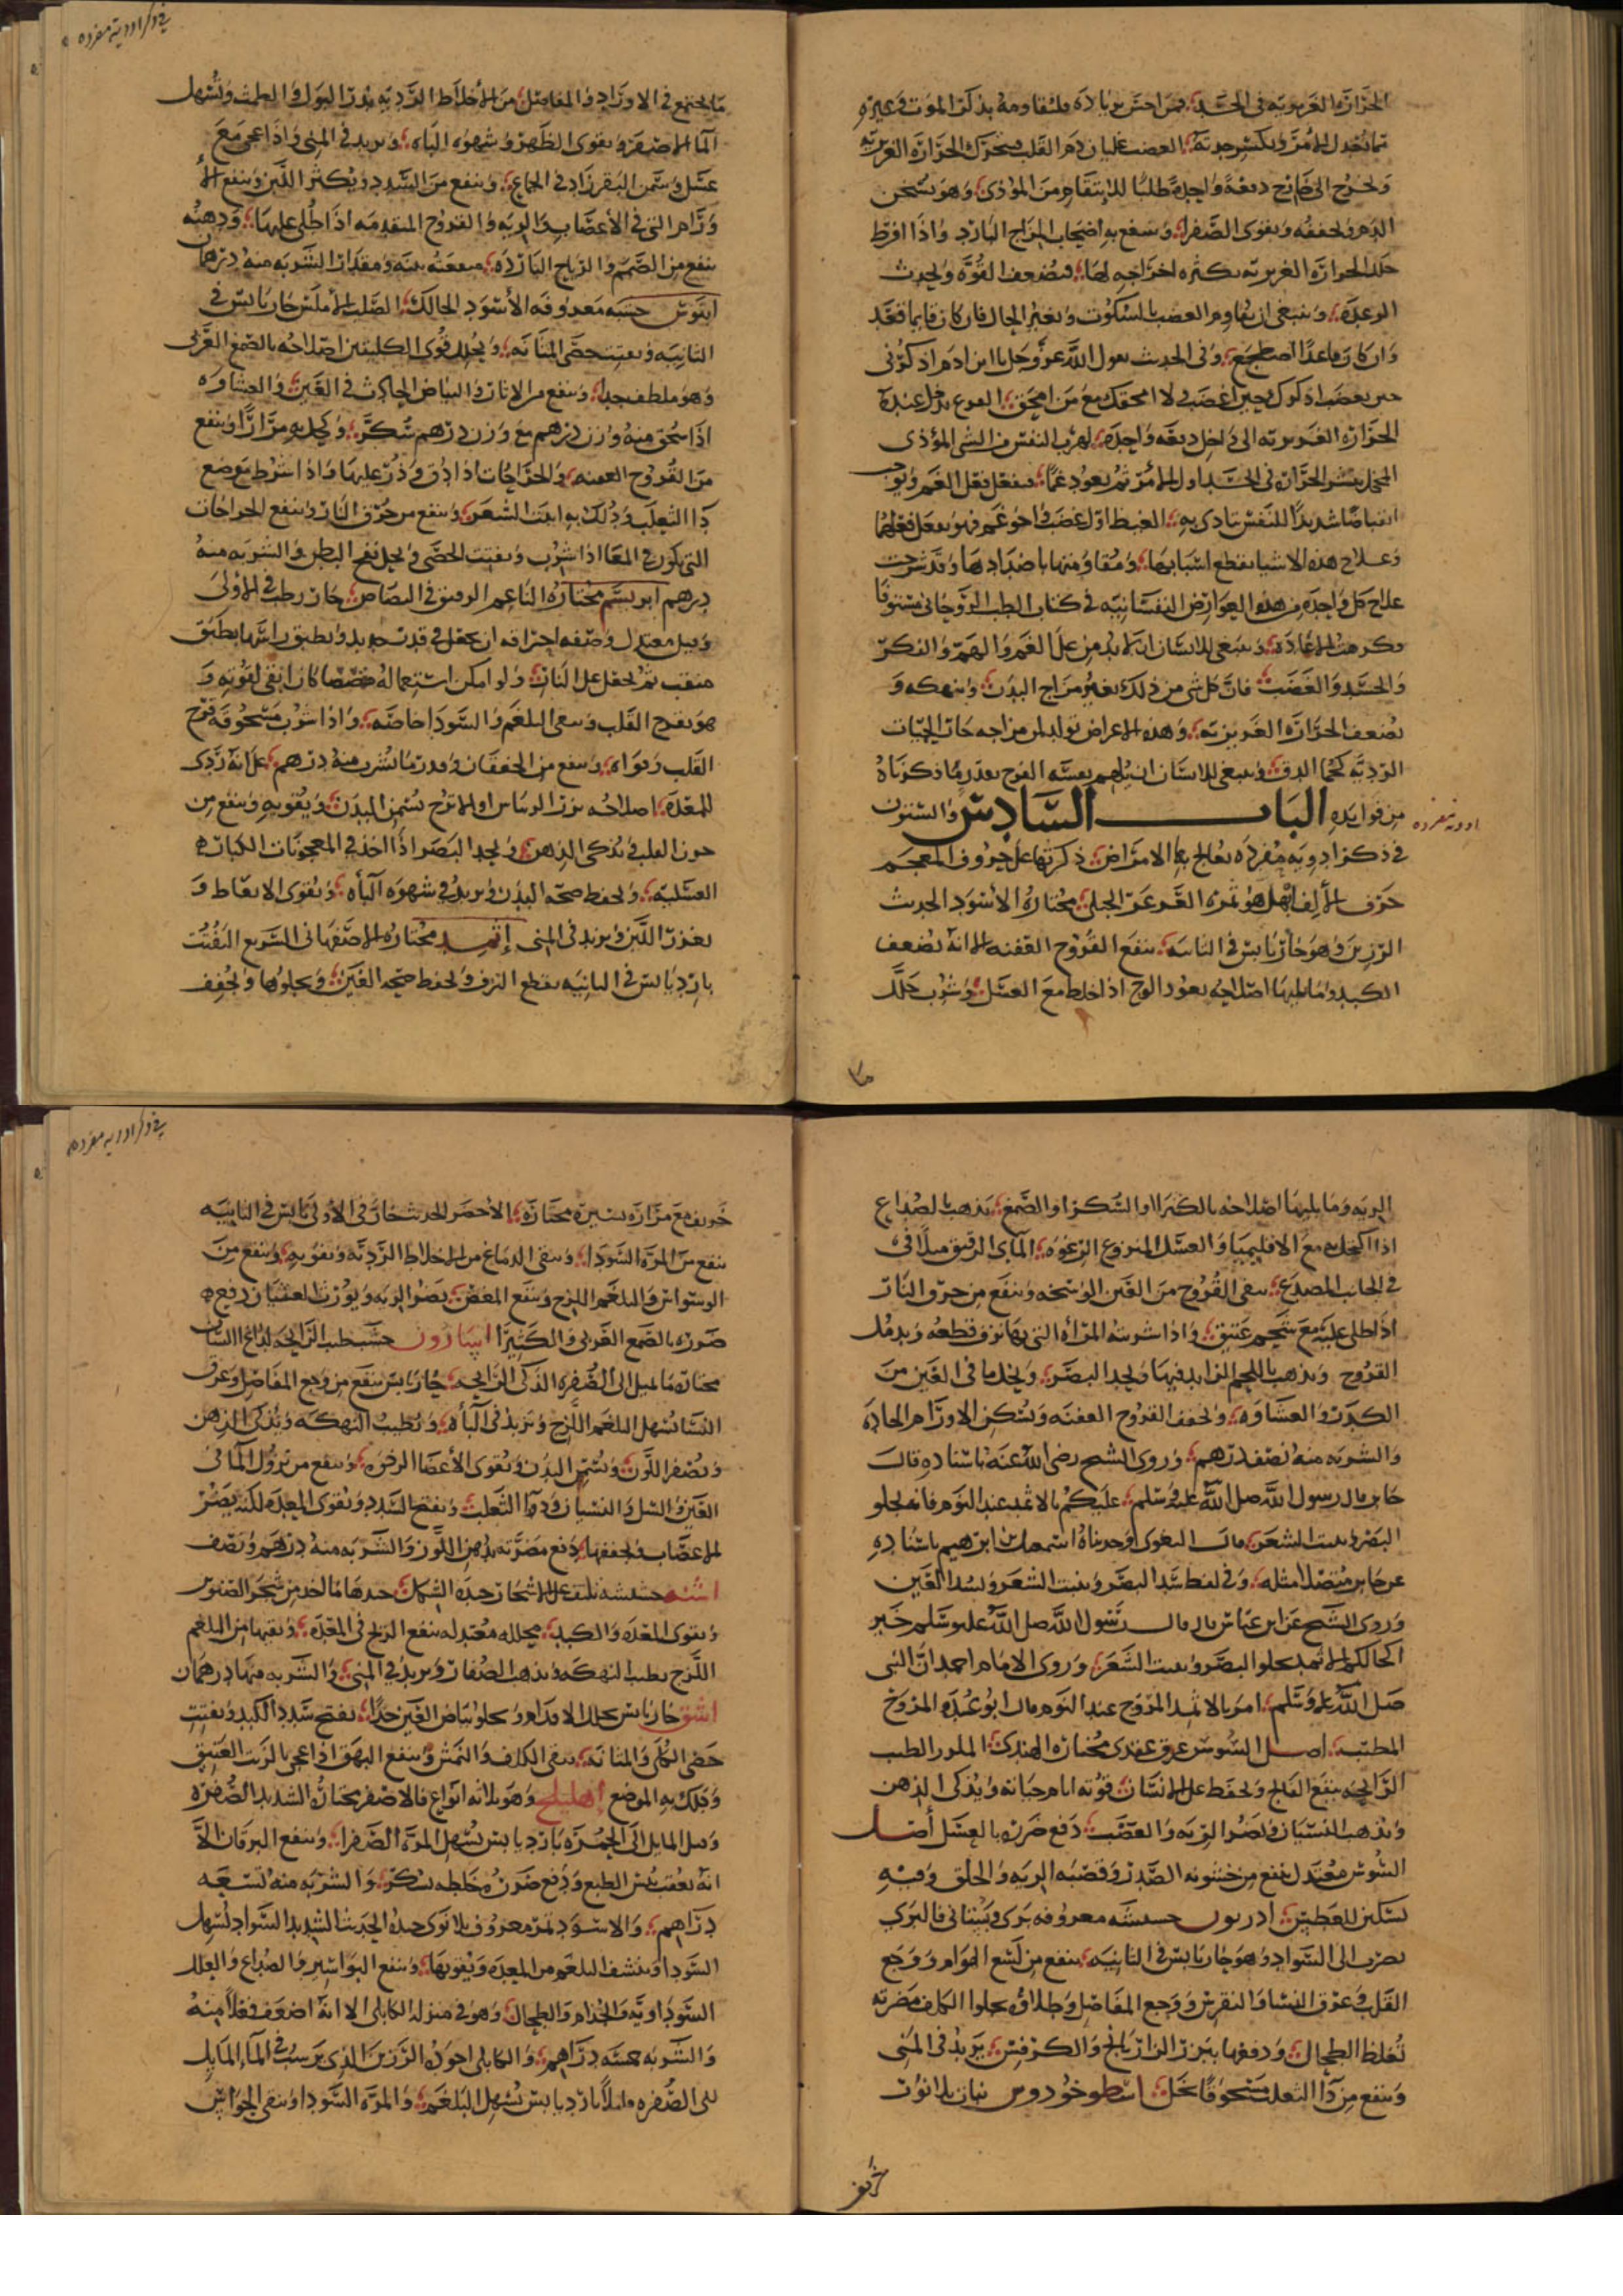 الحرارة الغريزية في الجسد فمن احس بزيادة فليقاومه بذكر الموت وغيره
مما يخذل المرء ويكسر حدته الغضب غليان دم القلب وتحرك الحرارة الغريزية
وتخرج الى خارج دفعة واحدة طلبا للانتقام من المؤذي وهو يسخن
البدن ويجففه ويقوى الصفرا وينتفع به اصحاب المزاج البارد واذا افرط
حلل الحرارة الغريزية بكثرة اخراجه لها فيضعف القوة ويحدث
الرعدة وينبغي ان يقاوم الغضب بالسكوت وتغير الحال فان كان قايما قعد
وان كان قاعدا اضطجع وفي الحديث يقول الله عز وجل يا ابن ادم اذكرني
حين تغضب اذكرك حين اغضب ولا امحقك مع من امحق الفزع يدخل عنده
الحرارة الغريزية الى داخل دفعة واحدة لهرب النفس من الشي المؤذي
الخجل ينشر الحرارة في الجسد اول الامر ثم يعود غما فيفعل فعل الغم ويوجب
انقباضا شديدا للنفس تتاذى به الغيظ اوله غضب واخره غم فهو يفعل فعلهما
وعلاج هذه الاشيا بقطع اسبابها ومقاومتها باضدادها وقد شرحت
علاج كل واحدة من هذه العوارض النفسانية في كتاب الطب الروحاني مستوفا
فكرهت الاعادة وينبغي للانسان ان لا يدمن على الغم والهم والفكر
والحسد والغضب فان كل شي من ذلك يغير مزاج البدن وينهكه و
يضعف الحرارة الغريزية وهذه الاعراض تولد لمن مزاجه حار الحميات
الردية كحما الدق وينبغي للانسان ان يلهم نفسه الفرح بقدر ما ذكرناه
من فوايده الباب السادس والستون
ادويه مفرده
في ذكر ادوية مفردة يعالج بها الامراض ذكرتها على حروف المعجم
حرف الالف ابهل هو ثمرة العرعر الجبلي مختاره الاسود الحديث
الرزين وهو حار يابس في الثالثة ينفع القروح العفنة الا انه يضعف
الكبد وما يليها اصلاحه بعود الوج اذا خلط مع العسل وشرب حلل
في ذكر ادويه مفرده
ما يجتمع في الاوراد والمفاصل من الاخلاط الردية يدر البول والطمث ويسهل
الما الاصفر ويقوى الظهر وشهوة الباه ويزيد في المنى واذا عجن مع
عسل وسمن البقر زاد في الجماع وينفع من السدد ويكثر اللبن وينفع الا
ورام التي في الاعضاب والرية والقروح المتقدمة اذا طلى عليها ودهنه
ينفع من الصمم والرياح الباردة منفعة بينة ومقدار الشربة منه درهمان
ابنوس خشبه معروفة الاسود الحالك الصلب الاملس حار يابس في
الثانية ويفتت حصى المثانة ويحلل قوى الكليتين اصلاحه بالصمغ العربي
وهو ملطف جدا وينفع من الاثار والبياض الحادث في العين والغشاوة
اذا سحق منه وزن درهم مع وزن درهم سكر وكحل به مرارا وينفع
من القروح العفنة والجراحات اذا دق وذر عليها واذا شرط موضع
دا الثعلب ودلك به انبت الشعر وينفع من حرق النار وينفع الجراحات
التي تكون في المعا اذا شرب ويفتت الحصى ويحل نفخ البطن والشربة منه
درهم ابريسم مختاره الناعم الرقيق البصاص حار رطب في الاولى
وقيل معتدل وصفة احراقه ان يجعل في قدر حديد ويطبق راسها بطبق
مثقب ثم يجعل على النار ولو امكن استعماله مقصصا كان ابقى لقوته و
هو يفرح القلب وينقي البلغم والسودا خاصة واذا شرب مسحوقه فرح
القلب وقواه وينفع من الخفقان وقدر ما يشرب منه درهم على انه ردى
للمعدة اصلاحه ببزر الريباس او الاترج يسمن البدن ويقويه وينفع من
حزن القلب ويذكى الذهن ويحد البصر اذا اخذ في المعجونات الكبار
العسلية ويحفظ صحة البدن ويزيد في شهوة الباه ويقوى الانعاظ و
يغزر اللبن ويزيد في المنى اثمد مختاره الاصفهاني السريع التفتت
بارد يابس في الثانية يقطع النزف ويحفظ صحة العين ويجلوها ويجفف
الرية وما يليها اصلاحه بالكثيرا او السكر او الصمغ يذهب بالصداع
اذا اكتحل به مع الاقليميا والعسل المنزوع الرغوة الماى الرقيق ميلا في
في الجانب المصدع ينقي القروح من العين الوسخة وينفع من حرق النار
اذا طلى عليه مع شحم عتيق واذا شربته المراة التي بها نزف قطعه ويدمل
القروح ويذهب باللحم الزايد فيها ويحد البصر ويجلو ما في العين من
الكدر والغشاوة ويجفف القروح العفنة ويسكن الاورام الحادة
والشربة منه نصف درهم وروى الشيخ رضى الله عنه باسناده قال
جابر قال رسول الله صلى الله عليه وسلم عليكم بالاثمد عند النوم فانه يجلو
البصر وينبت الشعر قال البغوى وحدثناه اسمعيل بن ابرهيم باسناده
عن جابر متصلا مثله وفي لفظ يشد البصر وينبت الشعر ويشد العين
وروى الشيخ عن ابن عباس قال قال رسول الله صلى الله عليه وسلم خير
اكحالكم الاثمد يجلو البصر وينبت الشعر وروى الامام احمد ان النبى
صلى الله عليه وسلم امر بالاثمد المروح عند النوم قال ابو عبيد المروح
المطيب اصل السوس عرق عقدى مختاره الهندى الملور الطيب
الرايحة ينفع الفالج ويحفظ على الانسان قوته ايام حياته ويذكى الذهن
ويذهب النسيان ويضر الرية والعصب دفع ضرره بالعسل اصل
السوس معتدل ينفع من خشونة الصدر وقصبة الرية والحلق وفيه
تسكين للعطش ادريون حشيشه معروفة برى وبستاني فالبرى
يضرب الى السواد وهو حار يابس في الثانية ينفع من لسع الهوام ووجع
القلب وعرق النسا والنقرس ووجع المفاصل وطلاوه يجلوا الكلف مضرته
تغلظ الطحال ودفعها ببزر الرازيانج والكرفس يزيد في المنى
وينفع من دا الثعلب مسحوقا بخل اسطوخودوس نبات بلا نوار
خريف
في ذكر ادويه مفرده
خريف مع مرارة يسيرة مختاره الاخضر الحديث حار في الاولى يابس في الثانية
ينفع من المرة السودا وينقى الدماغ من الاخلاط الردية ويقويه وينفع من
الوسواس والبلغم اللزج وينفع المغص يضر الرية ويورث الغثيان دفع
ضرره بالصمغ العربي والكثيرا اسارون خشب طيب الرايحة لذاع اللسان
مختاره ما يميل الى الصفرة الذكى الرايحة حار يابس ينفع من وجع المفاصل وعرق
النسا يسهل البلغم اللزج ويزيد في الباه ويطيب النهكة ويذكى الذهن
ويصفر اللون ويسمن البدن ويقوى الاعضا الرخوة وينفع من نزول الما في
العين والسل والنسيان ودا الثعلب ويفتح السدد ويقوى المعدة لكنه يضر
الاعصاب ويجففها دفع مضرته بدهن اللوز والشربة منه درهم ونصف
اشنه حشيشة تلتف على الاشجار جيدة الشمال جيدها ما اخذ من شجر الصنوبر
ويقوى المعدة والكبد محللة معتدلة ينفع الريح في المعدة وينقيها من البلغم
اللزج يطيب النهكة ويذهب الصفار ويزيد في المنى والشربة منها درهمان
اشق حار يابس يحلل الاورام ويجلو بياض العين جدا يفتح سدد الكبد ويفتت
حصى الكلى والمثانة ينقى الكلف والنمش وينفع البهق اذا عجن بالزيت العتيق
ودلك به الموضع اهليلج وهو ثلاثة انواع فالاصفر مختاره الشديد الصفرة
وقيل المايل الى الحمرة بارد يابس يسهل المرة الصفرا وينفع اليرقان الا
انه يعقب يبس الطبع ودفع ضرره مخلطه بسكر والشربة منه تسعة
دراهم والاسود ثمر معروف بلا نوى جيده الحديث الشديد السواد يسهل
السودا وينشف البلغم من المعدة ويقويها وينفع البواسير والصداع والعلل
السوداوية والجذام والطحال وهو في منزلة الكابلي الا انه اضعف فعلا منه
والشربة خمسة دراهم والكابلي اجوده الرزين الذى يرسب في الما المايل
للى الصفره قليلا بارد يابس يسهل البلغم والمرة السودا وينقى الحواس